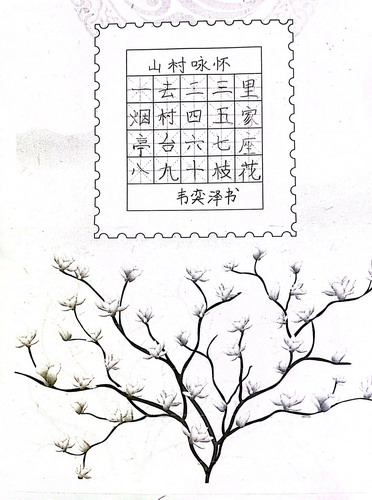 山村咏怀
一去二三里
烟村四五家
亭台六七座
八九十枝花
韦奕泽书